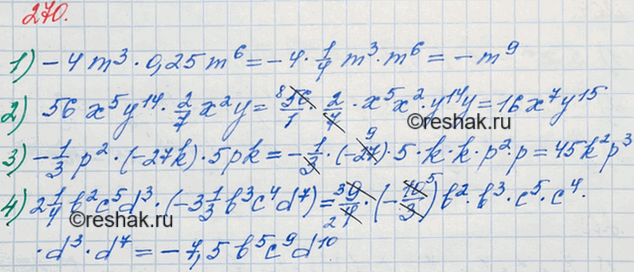 270.
1) -4 m³ · 0,25 m⁶ = -4 · 1/4 m³ · m⁶ = -m⁹
2) 56 x⁵y¹⁴ · 2/7 x²y = ⁸56/1 · 2/7 · x⁵x² · y¹⁴y = 16x⁷y¹⁵
3) -1/3 p² · (-27k) · 5pk = -1/3 · (-27⁹) · 5 · k · k · p² · p = 45k²p³
4) 2 1/4 b²c⁵d³ · (-3 1/3 b³c⁴d⁷) = ³9/4₂ · (-10⁵/3) b² · b³ · c⁵ · c⁴ ·
· d³ · d⁷ = -7,5 b⁵c⁹d¹⁰